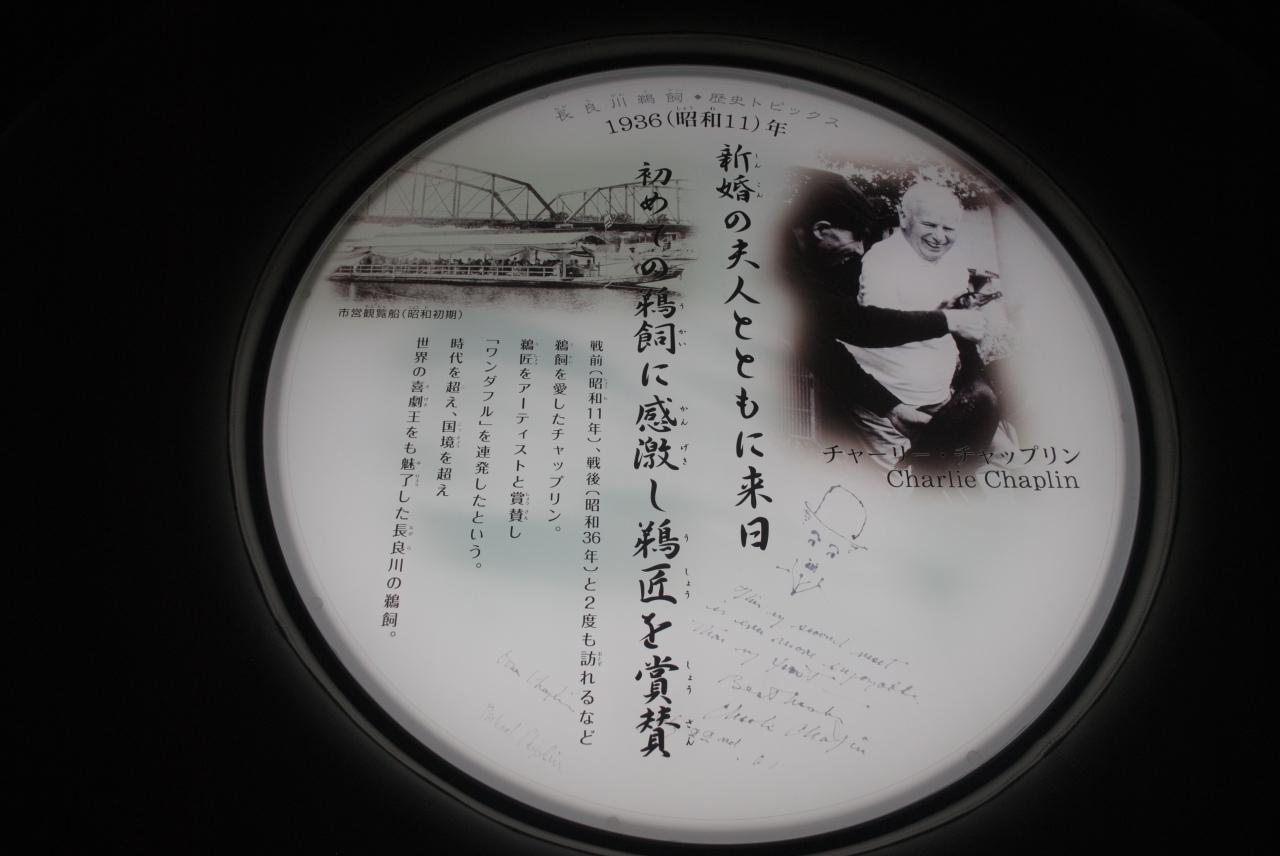 長良川鵜飼◆歴史トピックス
1936(昭和11)年
新婚の夫人とともに来日
初めての鵜飼に感激し鵜匠を賞賛
チャーリー・チャップリン
Charlie Chaplin
市営観覧船(昭和初期)
戦前〔昭和11年〕、戦後〔昭和36年〕と2度も訪れるなど
鵜飼を愛したチャップリン。
鵜匠をアーティストと賞賛し
「ワンダフル」を連発したという。
時代を超え、国境を超え
世界の喜劇王をも魅了した長良川の鵜飼。
This my second visit
is even more enjoyable
than my first
Best wishes
Charlie Chaplin
Oona Chaplin
Michael Chaplin